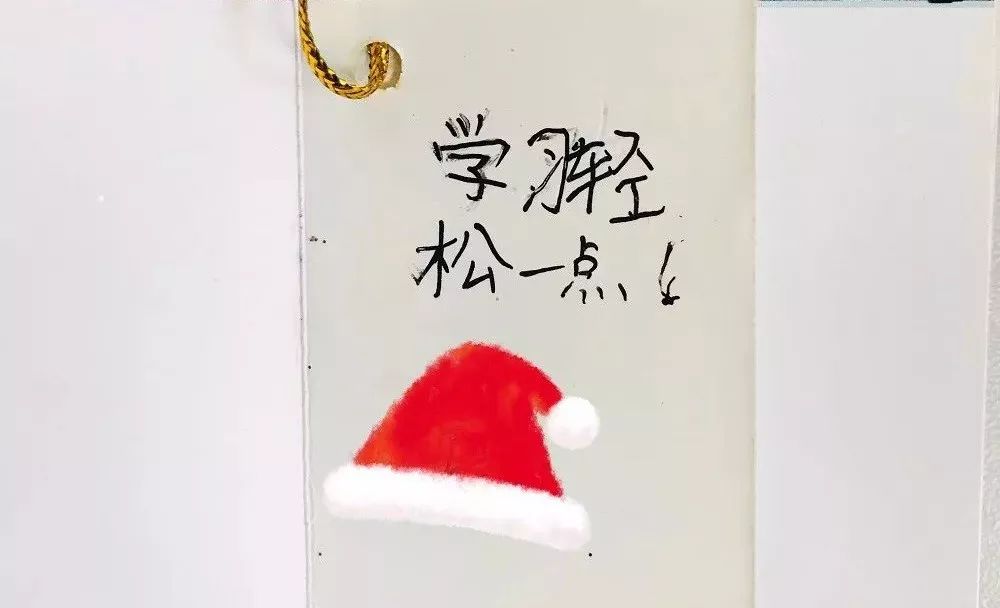 学习轻
松一点！